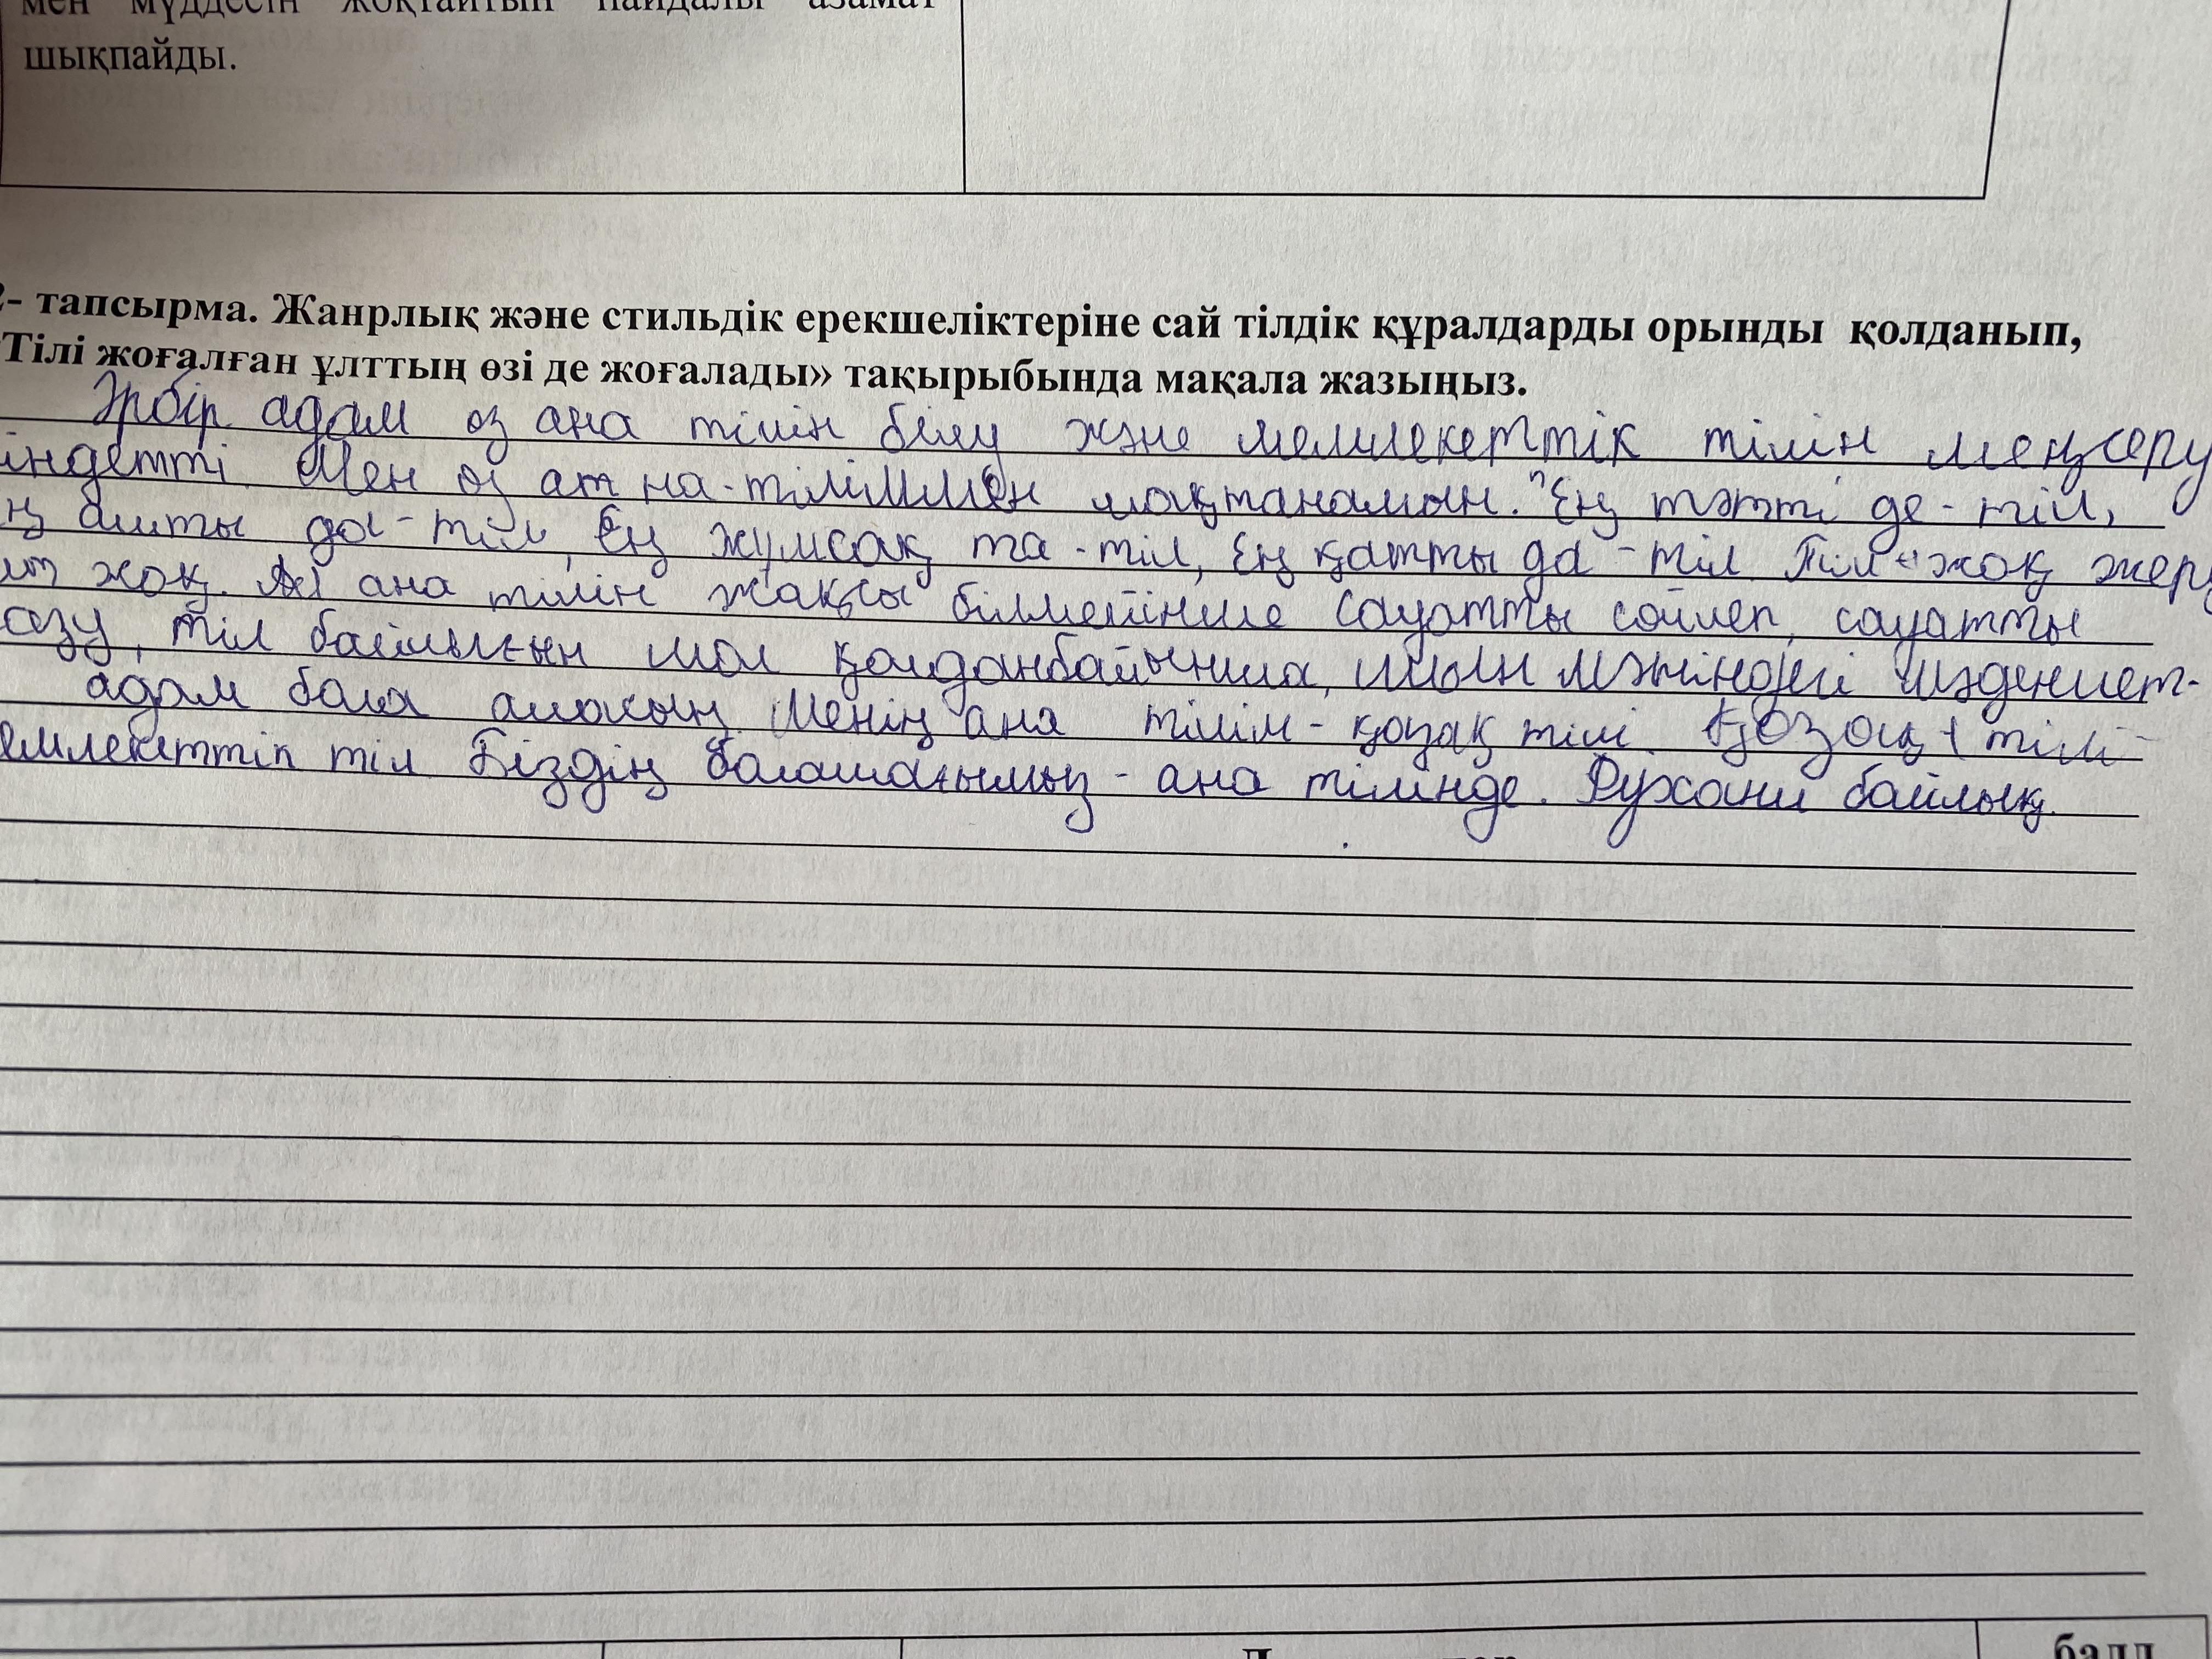 шықпайды.
- тапсырма. Жанрлық және стильдік ерекшеліктеріне сай тілдік құралдарды орынды қолданып,
Тілі жоғалған ұлттың өзі де жоғалады» тақырыбында мақала жазыңыз.
Әрбір адам өз ана тілін білу және мемлекеттік тілін меңгеру
індетті. Мен өз ат на-тіліммен мақтанамын. "Ең тәтті де - тіл,
ң ащты да - тіл, Ең жұмсақ та - тіл, Ең қатты да - тіл. Тіл жоқ жер
жоқ. Ал ана тілін жақсы білмейінше сауатты сөйлеп, сауатты
азу, тіл байлығын мол қолданбайынша, шын мәніндегі мәдениет-
адам бола алмасың. Менің ана тілім - қазақ тілі. Қазақ тілі -
емлекеттік тіл. Біздің болашағымыз - ана тілінде. Рухани байлық.
балл